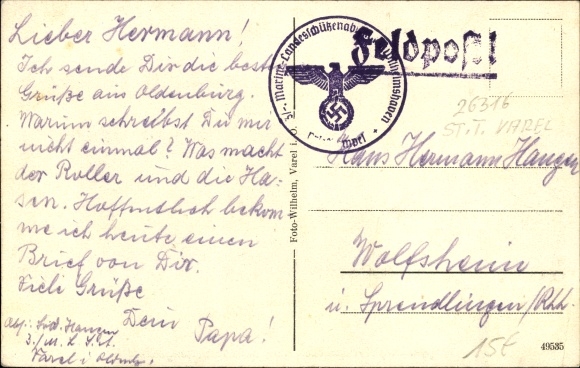 Lieber Hermann!
Ich sende Dir die best
Grüße aus Oldenburg.
Warum schreibst Du mir
nicht einmal? Was macht
der Roller und die Ha-
sen. Hoffentlich bekom
me ich heute einen
Brief von Dir.
Viele Grüße
Dein
Papa!
Abs: Sold. Hangen
3./M. L. S. A.
Varel i Oldenb.
Foto-Wilhelm, Varel i. O.
Marine-Landesschützenab Wilhelmshaven
Feldpost!
26316
ST.T. VAREL
Hans Hermann Hangen
Wolfsheim
u. Sprendlingen/Rhh.
15€
49535